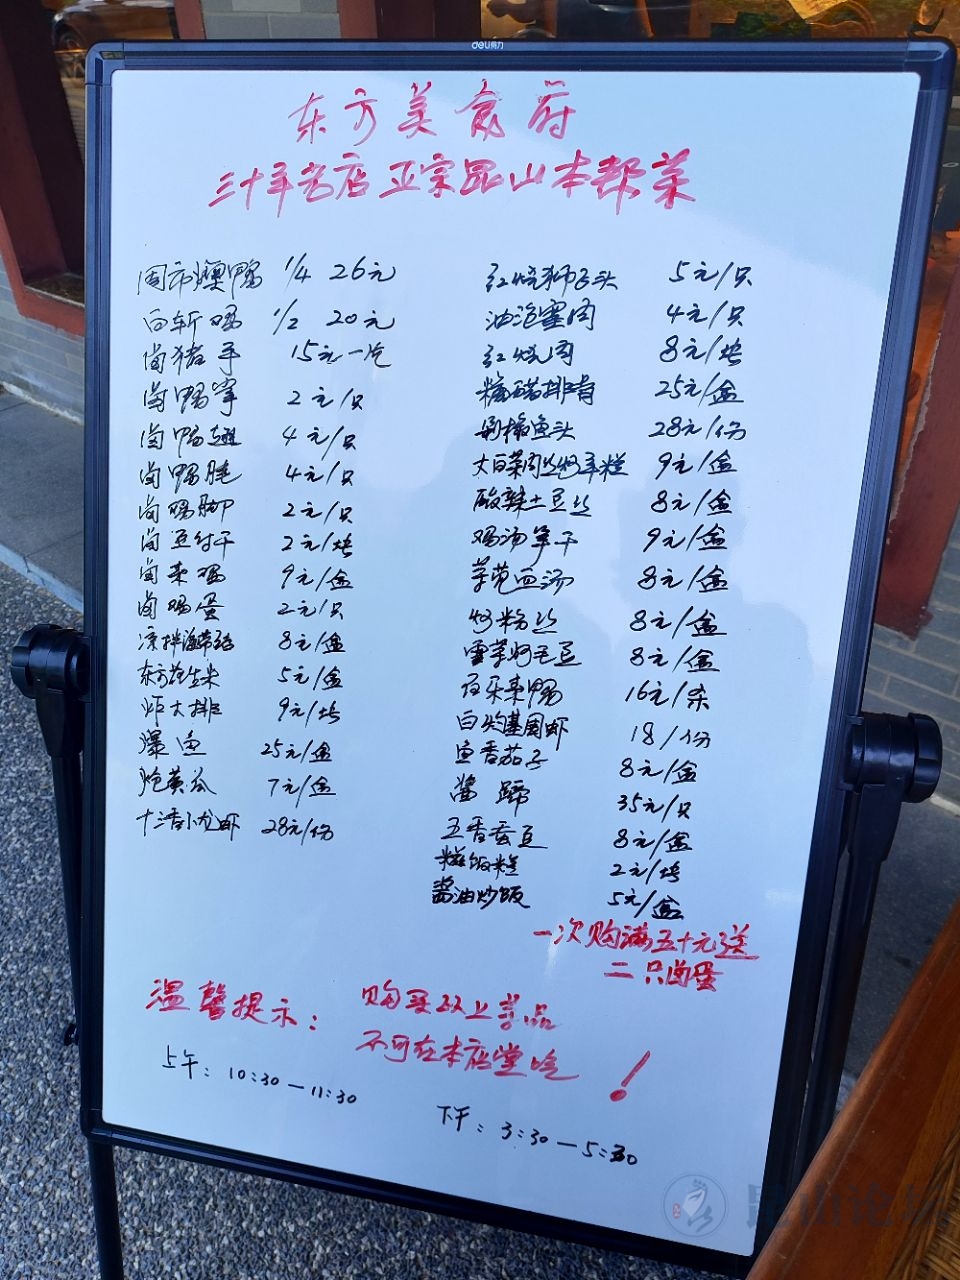 deli得力
东方美食府
三十年老店正宗昆山本帮菜
周市爊鸭 1/4 26元
白斩鸡 1/2 20元
卤猪手 15元一只
卤鸭掌 2元/只
卤鸭翅 4元/只
卤鸭肫 4元/只
卤鸡脚 2元/只
卤豆付干 2元/块
卤素鸡 9元/盒
卤鸡蛋 2元/只
凉拌海带丝 8元/盒
东方花生米 5元/盒
炸大排 9元/块
爆鱼 25元/盒
炝黄瓜 7元/盒
十三香小龙虾 28元/份
红烧狮子头 5元/只
油泡塞肉 4元/只
红烧肉 8元/块
糖醋排骨 25元/盒
剁椒鱼头 28元/份
大白菜肉丝烂年糕 9元/盒
酸辣土豆丝 8元/盒
鸡汤笋干 9元/盒
草芭血汤 8元/盒
炒粉丝 8元/盒
雪菜炒毛豆 8元/盒
百乐素鸭 16元/条
白灼基围虾 18/份
鱼香茄子 8元/盒
酱蹄 35元/只
五香蚕豆 8元/盒
糍饭糕 2元/块
酱油炒饭 5元/盒
一次购满五十元送
二只卤蛋
温馨提示： 购买以上菜品
不可在本店堂吃！
上午：10:30—11:30
下午：3:30—5:30
昆山论坛